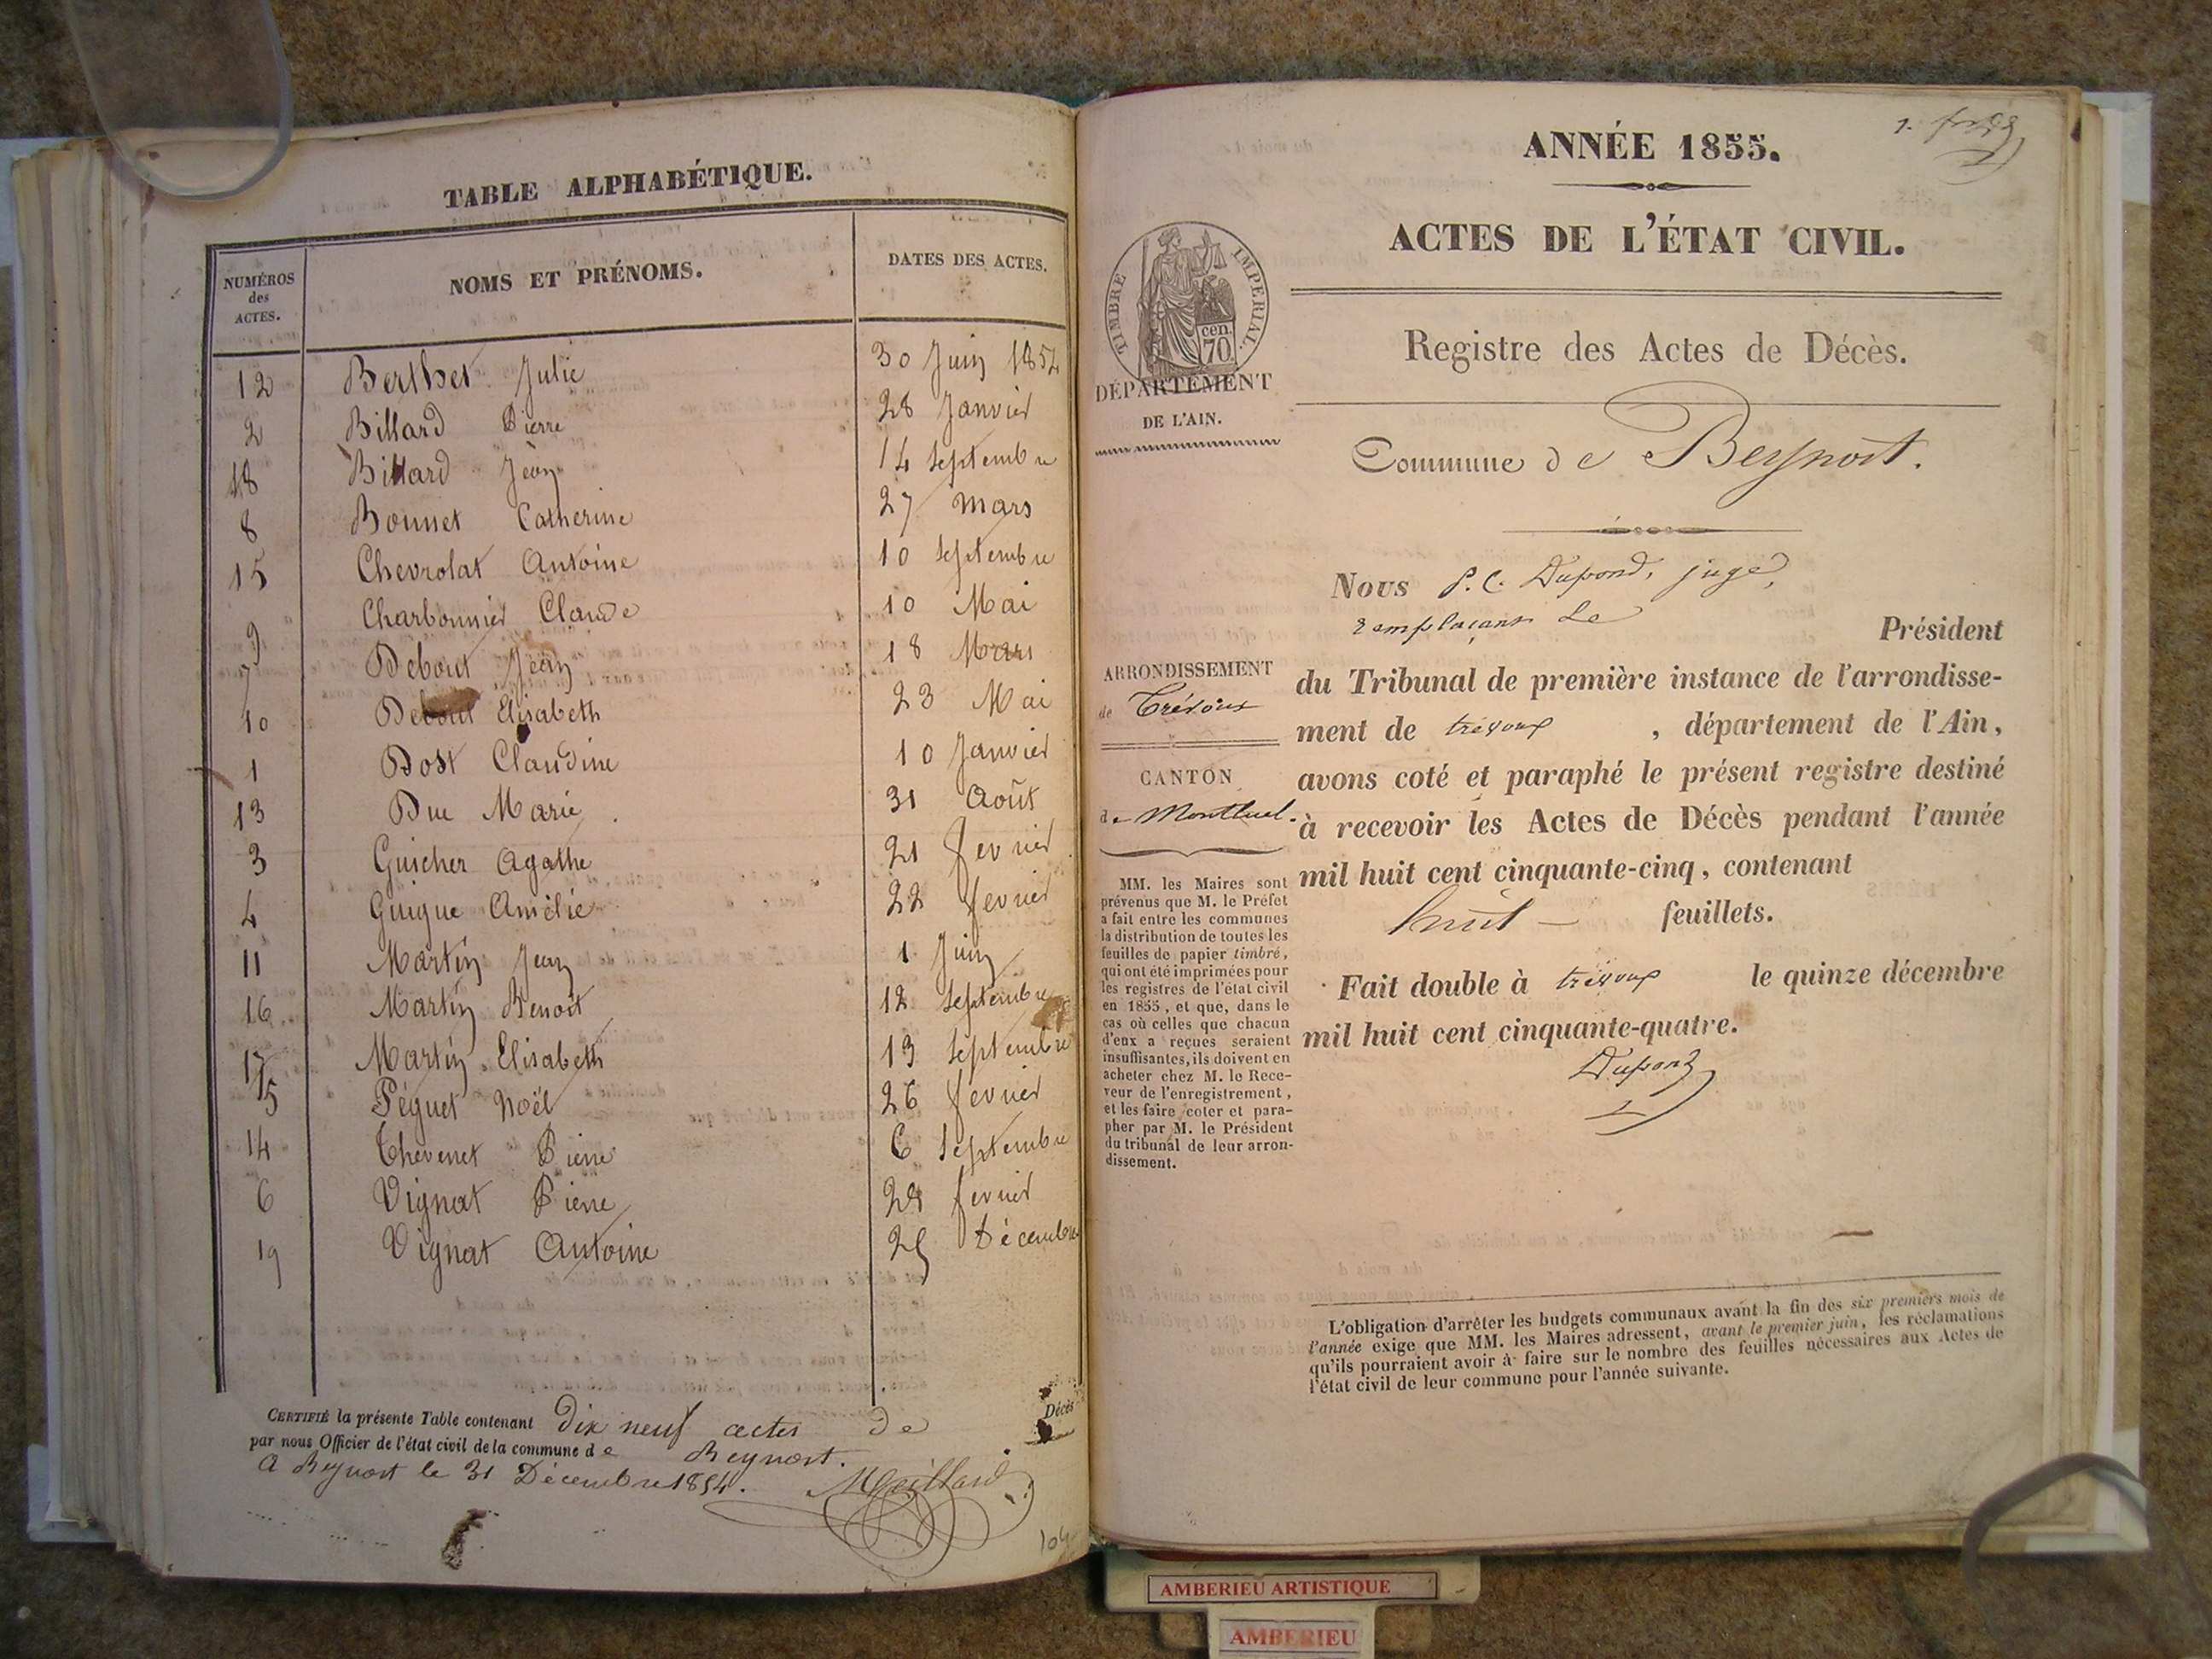 TABLE ALPHABÉTIQUE.
NUMÉROS des ACTES.
NOMS ET PRÉNOMS.
DATES DES ACTES.
12 Berthet Julie 30 Juin 1854
2 Billard Pierre 28 Janvier
18 Billard Jean 14 Septembre
8 Bonnet Catherine 27 Mars
15 Chevrolat Antoine 10 Septembre
9 Charbonnier Claude 10 Mai
7 Debout Jean 18 Mars
10 Debout Elisabeth 23 Mai
1 Dost Claudine 10 Janvier
13 Duc Marie 31 Août
3 Guicher Agathe 21 fevrier
4 Guigue Amélie 22 fevrier
11 Martin Jean 1 Juin
16 Martin Benoit 12 Septembre
17 Martin Elisabeth 13 Septembre
5 Péguet Noël 26 fevrier
14 Thevenet Pierre 6 Septembre
6 Vignat Pierre 28 fevrier
19 Vignat Antoine 25 Décembre
CERTIFIÉ la présente Table contenant dix neuf actes de Décès
par nous Officier de l'état civil de la commune de Beynost.
A Beynost le 31 Décembre 1854. Maillard
104
1.
ANNÉE 1855.
ACTES DE L'ÉTAT CIVIL.
TIMBRE IMPERIAL.
70 cen.
DÉPARTEMENT
DE L'AIN.
Registre des Actes de Décès.
Commune de Beynost.
Nous P. C. Dupond, juge,
remplaçant Le Président
du Tribunal de première instance de l'arrondisse-
ment de trévoux , département de l'Ain,
avons coté et paraphé le présent registre destiné
à recevoir les Actes de Décès pendant l'année
mil huit cent cinquante-cinq, contenant
huit — feuillets.
Fait double à trévoux le quinze décembre
mil huit cent cinquante-quatre.
Dupond
ARRONDISSEMENT
de Trévoux
CANTON
de Montluel.
MM. les Maires sont
prévenus que M. le Préfet
a fait entre les communes
la distribution de toutes les
feuilles de papier timbré,
qui ont été imprimées pour
les registres de l'état civil
en 1855, et que, dans le
cas où celles que chacun
d'eux a reçues seraient
insuffisantes, ils doivent en
acheter chez M. le Rece-
veur de l'enregistrement,
et les faire coter et para-
pher par M. le Président
du tribunal de leur arron-
dissement.
L'obligation d'arrêter les budgets communaux avant la fin des six premiers mois de
l'année exige que MM. les Maires adressent, avant le premier juin, les réclamations
qu'ils pourraient avoir à faire sur le nombre des feuilles nécessaires aux Actes de
l'état civil de leur commune pour l'année suivante.
AMBERIEU ARTISTIQUE
AMBERIEU